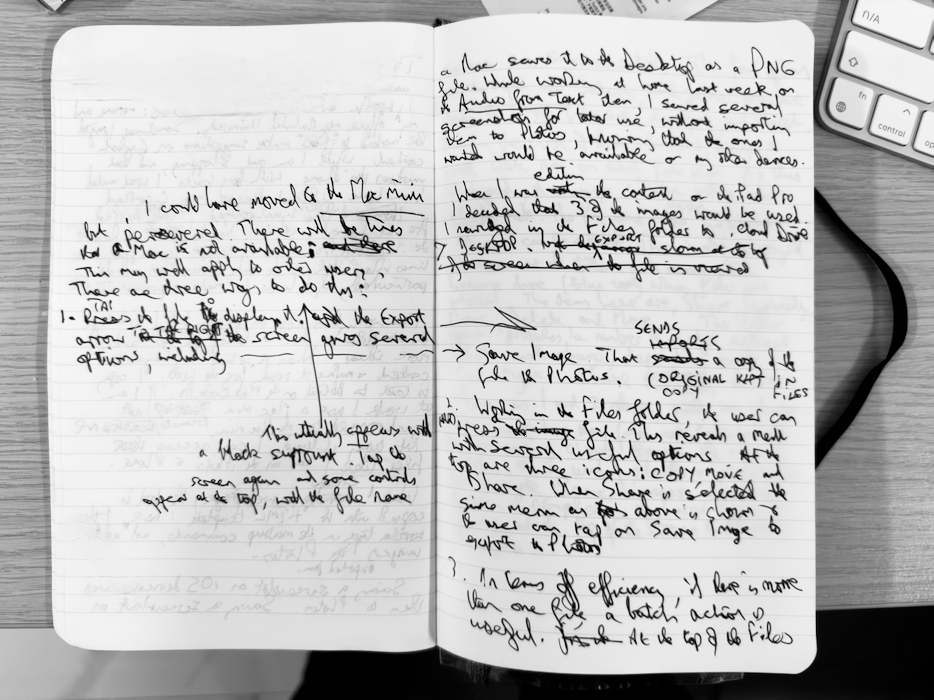 I could have moved to the Mac Mini
but persevered. There will be times
that a Mac is not available;
This may well apply to other users.
There are three ways to do this:
1. TAP the file to display it, and the Export
arrow TO THE RIGHT the screen gives several
options, including
This initially appears with
a black surround. Tap the
screen again and some controls
appear at the top, with the file name
a Mac saves it to the Desktop as a PNG
file. While working at home last week, on
Audio from Text item, I saved several
screenshots for later use, without importing
them to Photos, knowing that the ones I
wanted would be available on my other devices.
editing
When I was the content on the iPad Pro
I decided that 3 of the images would be used.
I in the Files folder to iCloud Drive
> DESKTOP but EXPORT
the screen when the file is moved
SENDS
→ Save Image - That a copy of the
file to Photos. (ORIGINAL KEPT IN
COPY FILES
2. Working in the Files folder, the user can
press file. This reveals a menu
with several useful options. At the
top are three icons: COPY, MOVE and
Share. When Share is selected the
same menu as above is shown &
the user can tap on Save Image to
export to Photos
3. In terms of efficiency, if there is more
than one file a batch action is
useful. At the top of the Files
n/A
fn
control
op